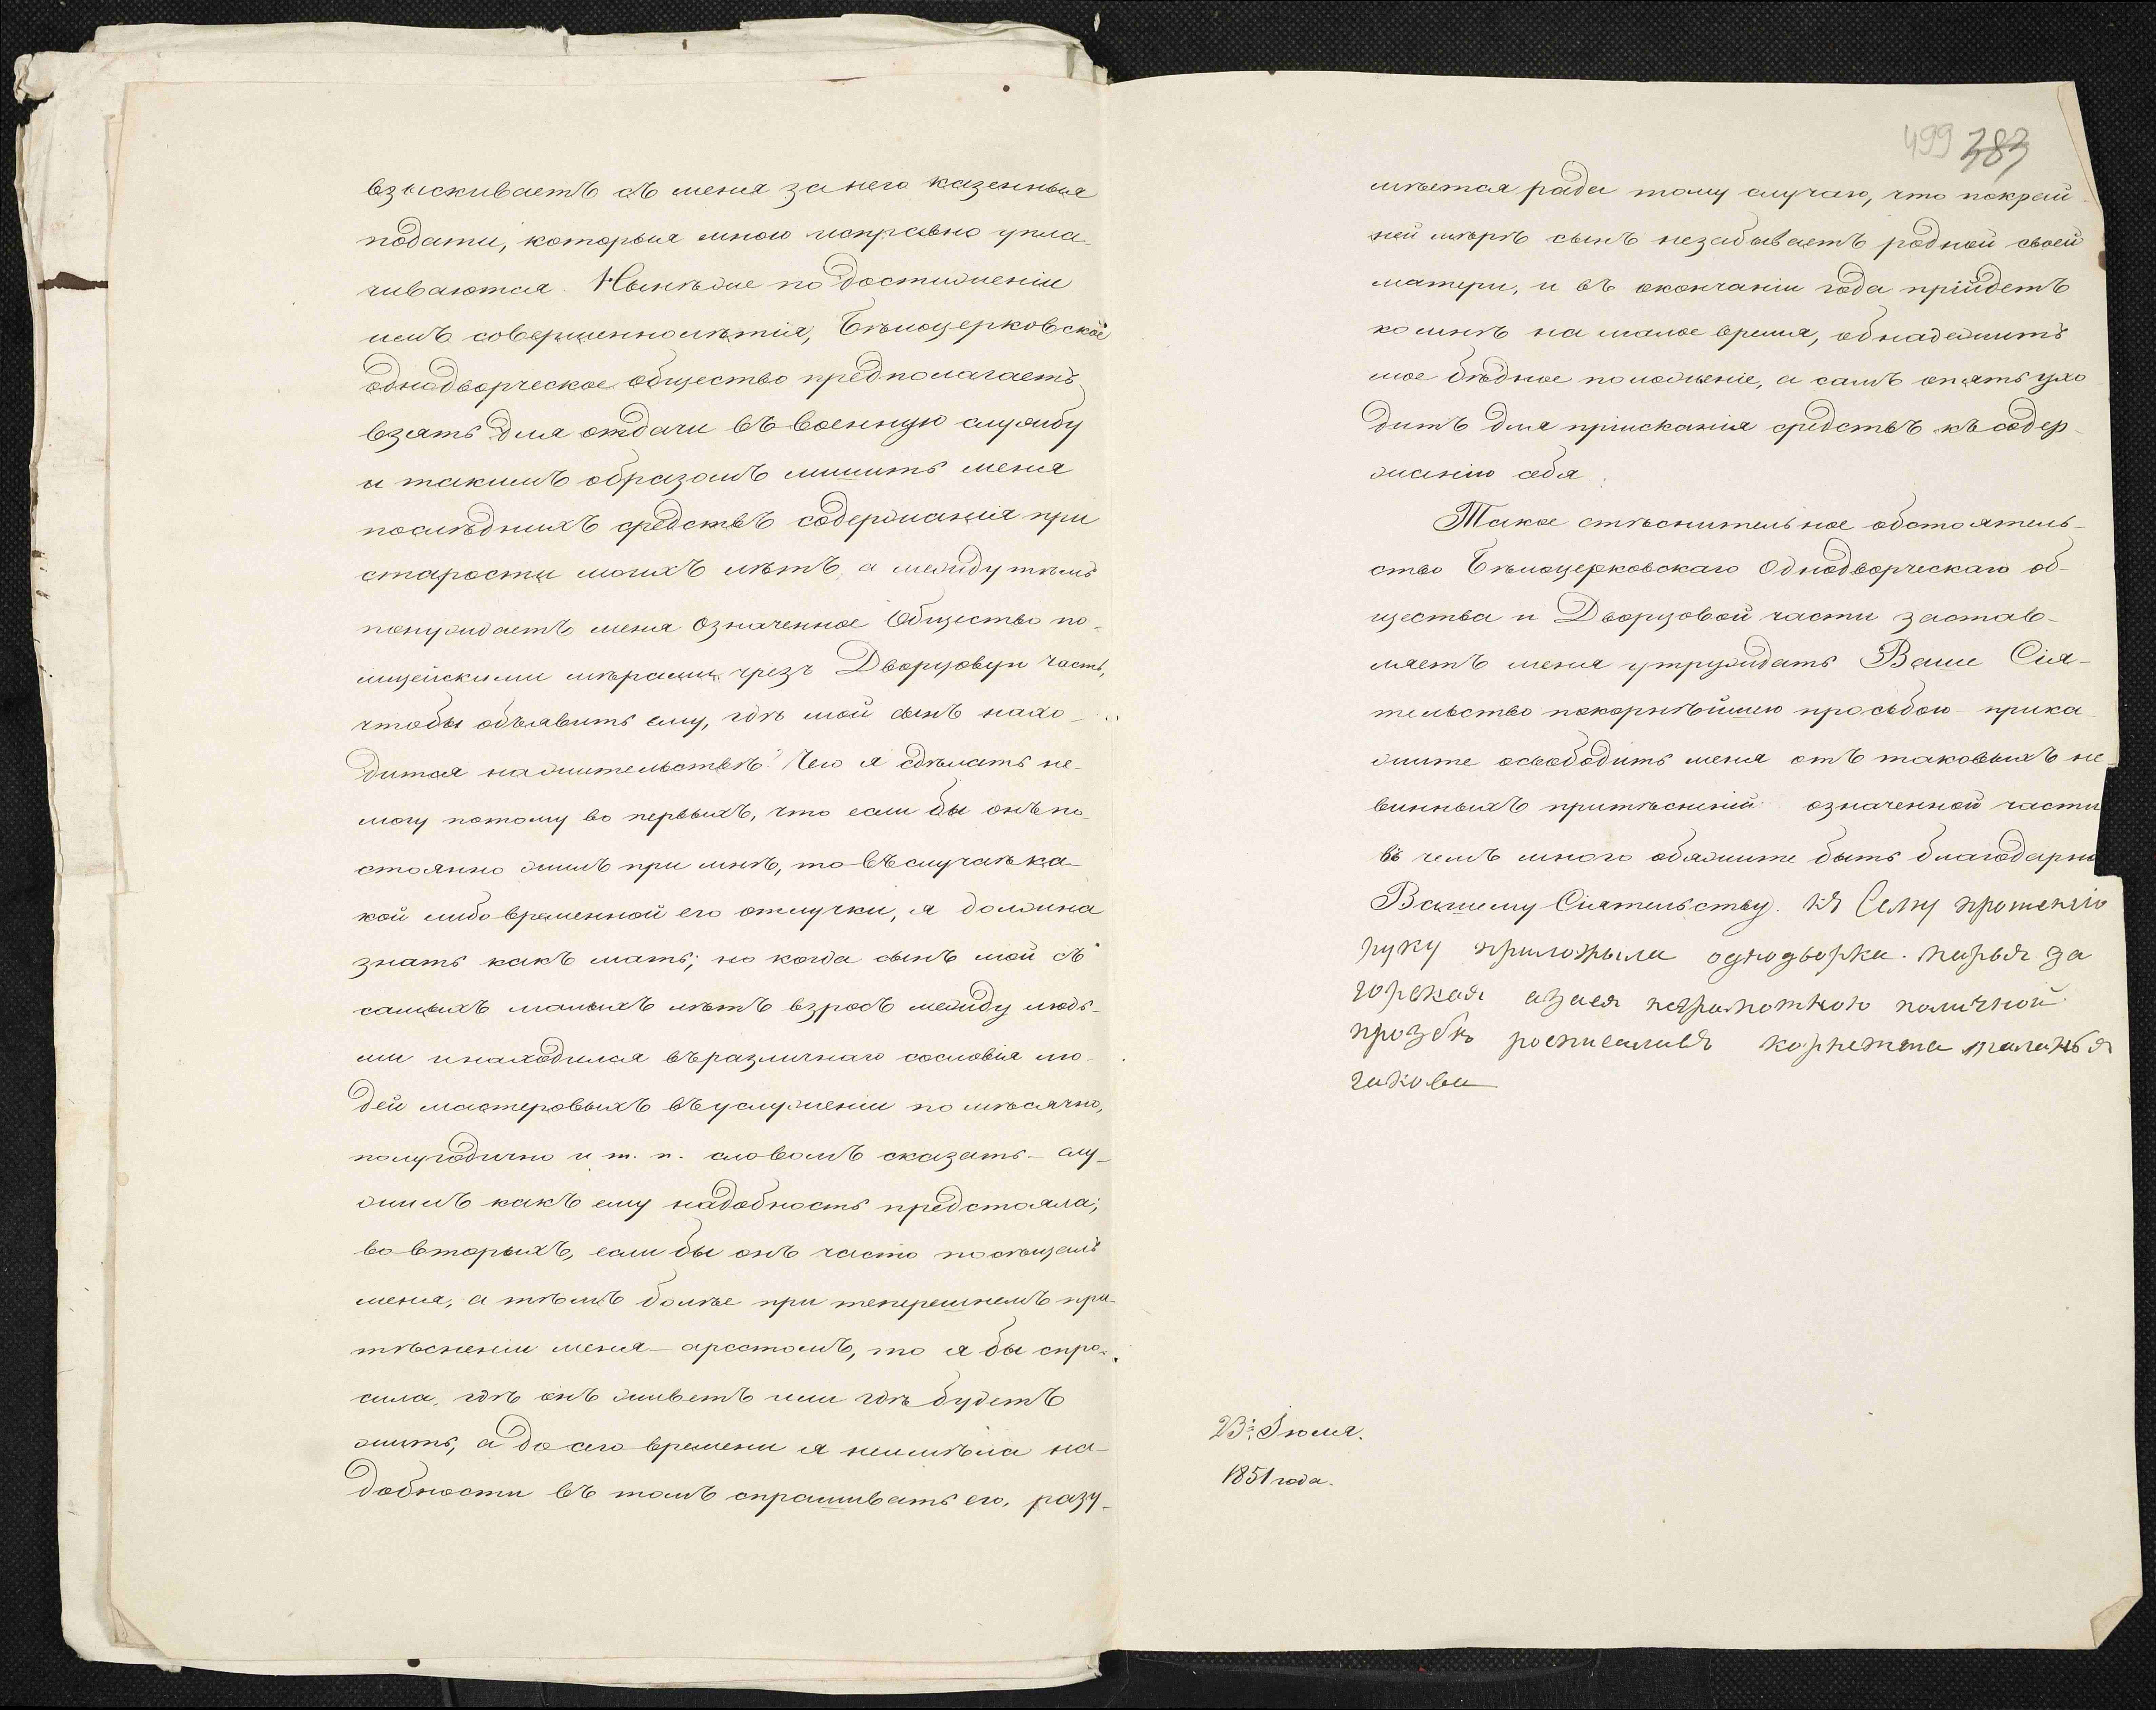 взыскиваетъ съ меня за него казенныя
подати, которыя мною исправно упла-
чиваются. Нынѣже по достиженіи
имъ совершеннолѣтія, Бѣлоцерковское
однодворческое общество предполагаетъ
взять для отдачи въ военную службу
и такимъ образомъ лишить меня
послѣднихъ средствъ содержанія при
старости моихъ лѣтъ, а между тѣмъ
понуждаетъ меня означенное Общество по-
лицейскими мѣрами чрезъ Дворцовую часть,
чтобы объявить ему, гдѣ мой сынъ нахо-
дится на жительствѣ? Чего я сдѣлать не-
могу потому во первыхъ, что если бы онъ по-
стоянно жилъ при мнѣ, то въ случаѣ ка-
кой либо временной его отлучки, я должна
знать какъ мать; но когда сынъ мой съ
самыхъ малыхъ лѣтъ взросъ между людь-
ми и находился въ различнаго сословія лю-
дей мастеровыхъ въ услуженіи по мѣсячно,
полугодично и т. п. словомъ сказать - слу-
жилъ какъ ему надобность предстояла;
во вторыхъ, если бы онъ часто посѣщалъ
меня, а тѣмъ болѣе при теперешнемъ при-
тѣсненіи меня - арестомъ, то я бы спро-
сила, гдѣ онъ живетъ или гдѣ будетъ
жить, а до сего времени я неимѣла на-
добности въ томъ спрашивать его, разу-
499 383
мѣется рада тому случаю, что покрай-
ней мѣрѣ сынъ незабываетъ родной своей
матери, и въ окончаніи года прійдетъ
ко мнѣ на малое время, обнадежитъ
мое бѣдное положеніе, а самъ опять ухо
дитъ для пріисканія средствъ къ содер-
жанію себя.
Такое стѣснительное обстоятель-
ство Бѣлоцерковскаго Однодворческаго об-
щества и Дворцовой части застав-
ляетъ меня утруждать Ваше Сія-
тельство покорнѣйшею просьбою - прика-
жите освободить меня отъ таковыхъ не-
винныхъ притѣсненій означенной части
въ чемъ много обяжите быть благодарны
Вашему Сіятельству. къ Сему прошенію
руку приложыла однодворка. марья за
горская азаея неграмотною поличной
прозбѣ росписаливъ
23. Іюля.
1851 года.